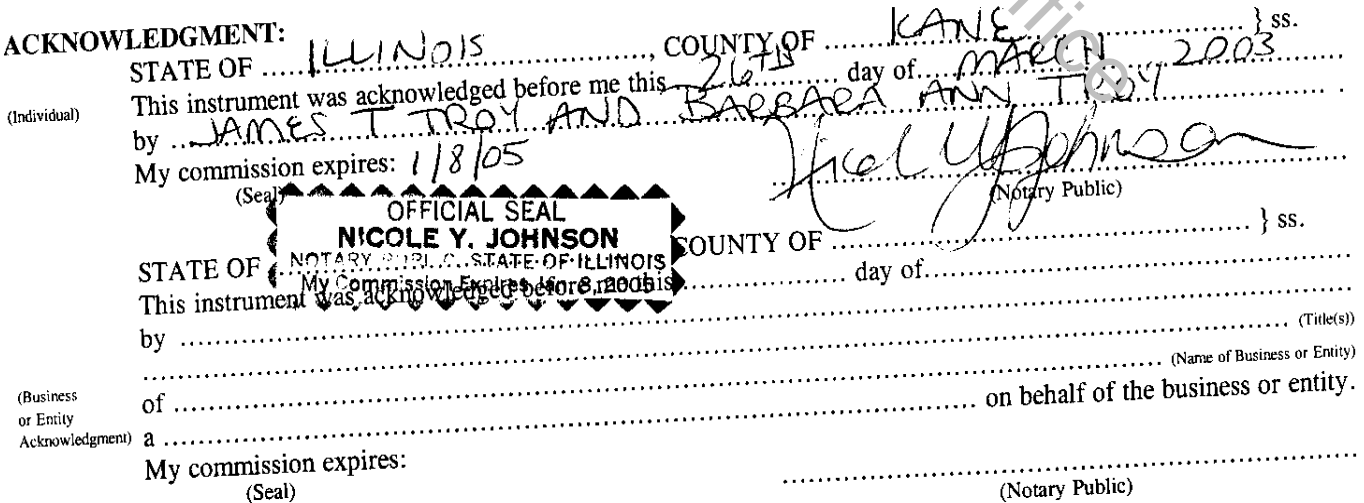 ACKNOWLEDGMENT:
STATE OF ILLINOIS, COUNTY OF KANE } ss.
(Individual) This instrument was acknowledged before me this 26TH day of MARCH 2003
by JAMES T TROY AND BARBARA ANN TROY
My commission expires: 1/8/05
(Seal) (Notary Public)
OFFICIAL SEAL
NICOLE Y. JOHNSON
NOTARY PUBLIC STATE OF ILLINOIS
My Commission Expires Jan 8, 2005
STATE OF COUNTY OF } ss.
This instrument was acknowledged before me this day of
by
(Title(s))
(Business or Entity Acknowledgment) of (Name of Business or Entity)
a on behalf of the business or entity.
My commission expires:
(Seal) (Notary Public)